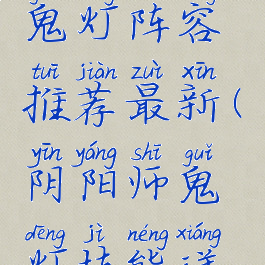 鬼灯阵容
tuī jiàn zuì xīn
推荐最新(
yīn yáng shī guǐ
阴阳师鬼
dēng jì néng xiáng
灯技能详